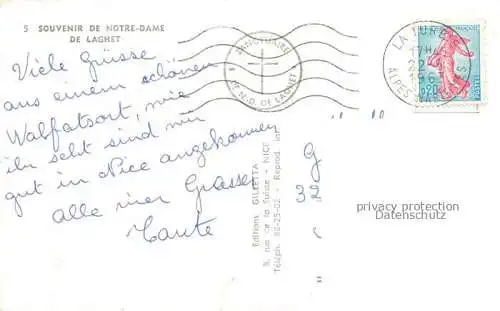 5 SOUVENIR DE NOTRE-DAME
DE LAGHET
Viele Grüsse
aus einem schönen
Walfatsort, wie
ihr seht sind wir
gut in Nice angekommen
alle vier Grassen
Tante
SANCTUAIRE
DE N.-D. DE LAGHET
LA TURBIE
17H
22
196
ALPES
FRANÇAISE
0,20
POSTES
Editions GILLETTA
8, rue de la Suisse - NICE
Téléph. 88-25-02 - Reprod. int.
G
32
privacy protection
Datenschutz